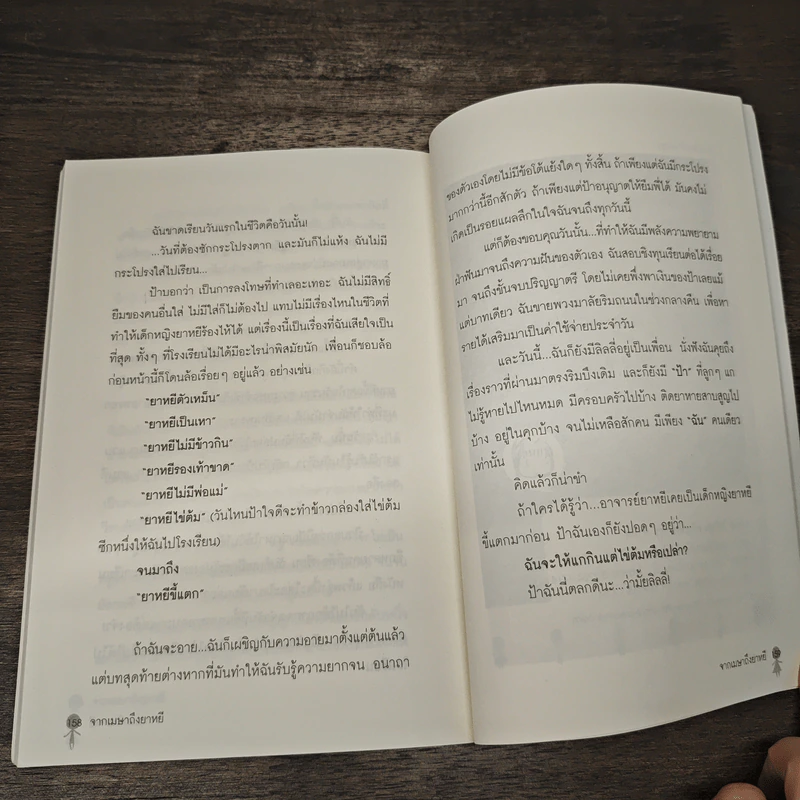 ฉันขาดเรียนวันแรกในชีวิตคือวันนั้น!
...วันที่ต้องซักกระโปรงตาก และมันก็ไม่แห้ง ฉันไม่มี
กระโปรงใส่ไปเรียน...
ป้าบอกว่า เป็นการลงโทษที่ทำเลอะเทอะ ฉันไม่มีสิทธิ์
ยืมของคนอื่นใส่ ไม่มีใส่ก็ไม่ต้องไป แทบไม่มีเรื่องไหนในชีวิตที่
ทำให้เด็กหญิงยาหยีร้องไห้ได้ แต่เรื่องนี้เป็นเรื่องที่ฉันเสียใจเป็น
ที่สุด ทั้งๆ ที่โรงเรียนไม่ได้มีอะไรน่าพิสมัยนัก เพื่อนก็ชอบล้อ
ก่อนหน้านี้ก็โดนล้อเรื่อยๆ อยู่แล้ว อย่างเช่น
"ยาหยีตัวเหม็น"
"ยาหยีเป็นเหา"
"ยาหยีไม่มีข้าวกิน"
"ยาหยีรองเท้าขาด"
"ยาหยีไม่มีพ่อแม่"
"ยาหยีไข่ต้ม" (วันไหนป้าใจดีจะทำข้าวกล่องใส่ไข่ต้ม
ซีกหนึ่งให้ฉันไปโรงเรียน)
จนมาถึง
"ยาหยีขี้แตก"
ถ้าฉันจะอาย...ฉันก็เผชิญกับความอายมาตั้งแต่ต้นแล้ว
แต่บทสุดท้ายต่างหากที่มันทำให้ฉันรับรู้ความยากจน อนาถา
158 จากเมษาถึงยาหยี
ของตัวเองโดยไม่มีข้อโต้แย้งใดๆ ทั้งสิ้น ถ้าเพียงแต่ฉันมีกระโปรง
มากกว่านี้อีกสักตัว ถ้าเพียงแต่ป้าอนุญาตให้ยืมพี่ได้ มันคงไม่
เกิดเป็นรอยแผลลึกในใจฉันจนถึงทุกวันนี้
แต่ก็ต้องขอบคุณวันนั้น...ที่ทำให้ฉันมีพลังความพยายาม
ฝ่าฟันมาจนถึงความฝันของตัวเอง ฉันสอบชิงทุนเรียนต่อได้เรื่อย
มา จนถึงขั้นจบปริญญาตรี โดยไม่เคยพึ่งพาเงินของป้าเลยแม้
แต่บาทเดียว ฉันขายพวงมาลัยริมถนนในช่วงกลางคืน เพื่อหา
รายได้เสริมมาเป็นค่าใช้จ่ายประจำวัน
และวันนี้...ฉันก็ยังมีลิลลี่อยู่เป็นเพื่อน นั่งฟังฉันคุยถึง
เรื่องราวที่ผ่านมาตรงริมบึงเดิม และก็ยังมี "ป้า" ที่ลูกๆ แก
ไม่รู้หายไปไหนหมด มีครอบครัวไปบ้าง ติดยาหายสาบสูญไป
บ้าง อยู่ในคุกบ้าง จนไม่เหลือสักคน มีเพียง "ฉัน" คนเดียว
เท่านั้น
คิดแล้วก็น่าขำ
ถ้าใครได้รู้ว่า...อาจารย์ยาหยีเคยเป็นเด็กหญิงยาหยี
ขี้แตกมาก่อน ป้าฉันเองก็ยังปอดๆ อยู่ว่า...
ฉันจะให้แกกินแต่ไข่ต้มหรือเปล่า?
ป้าฉันนี่ตลกดีนะ...ว่ามั้ยลิลลี่!
จากเมษาถึงยาหยี